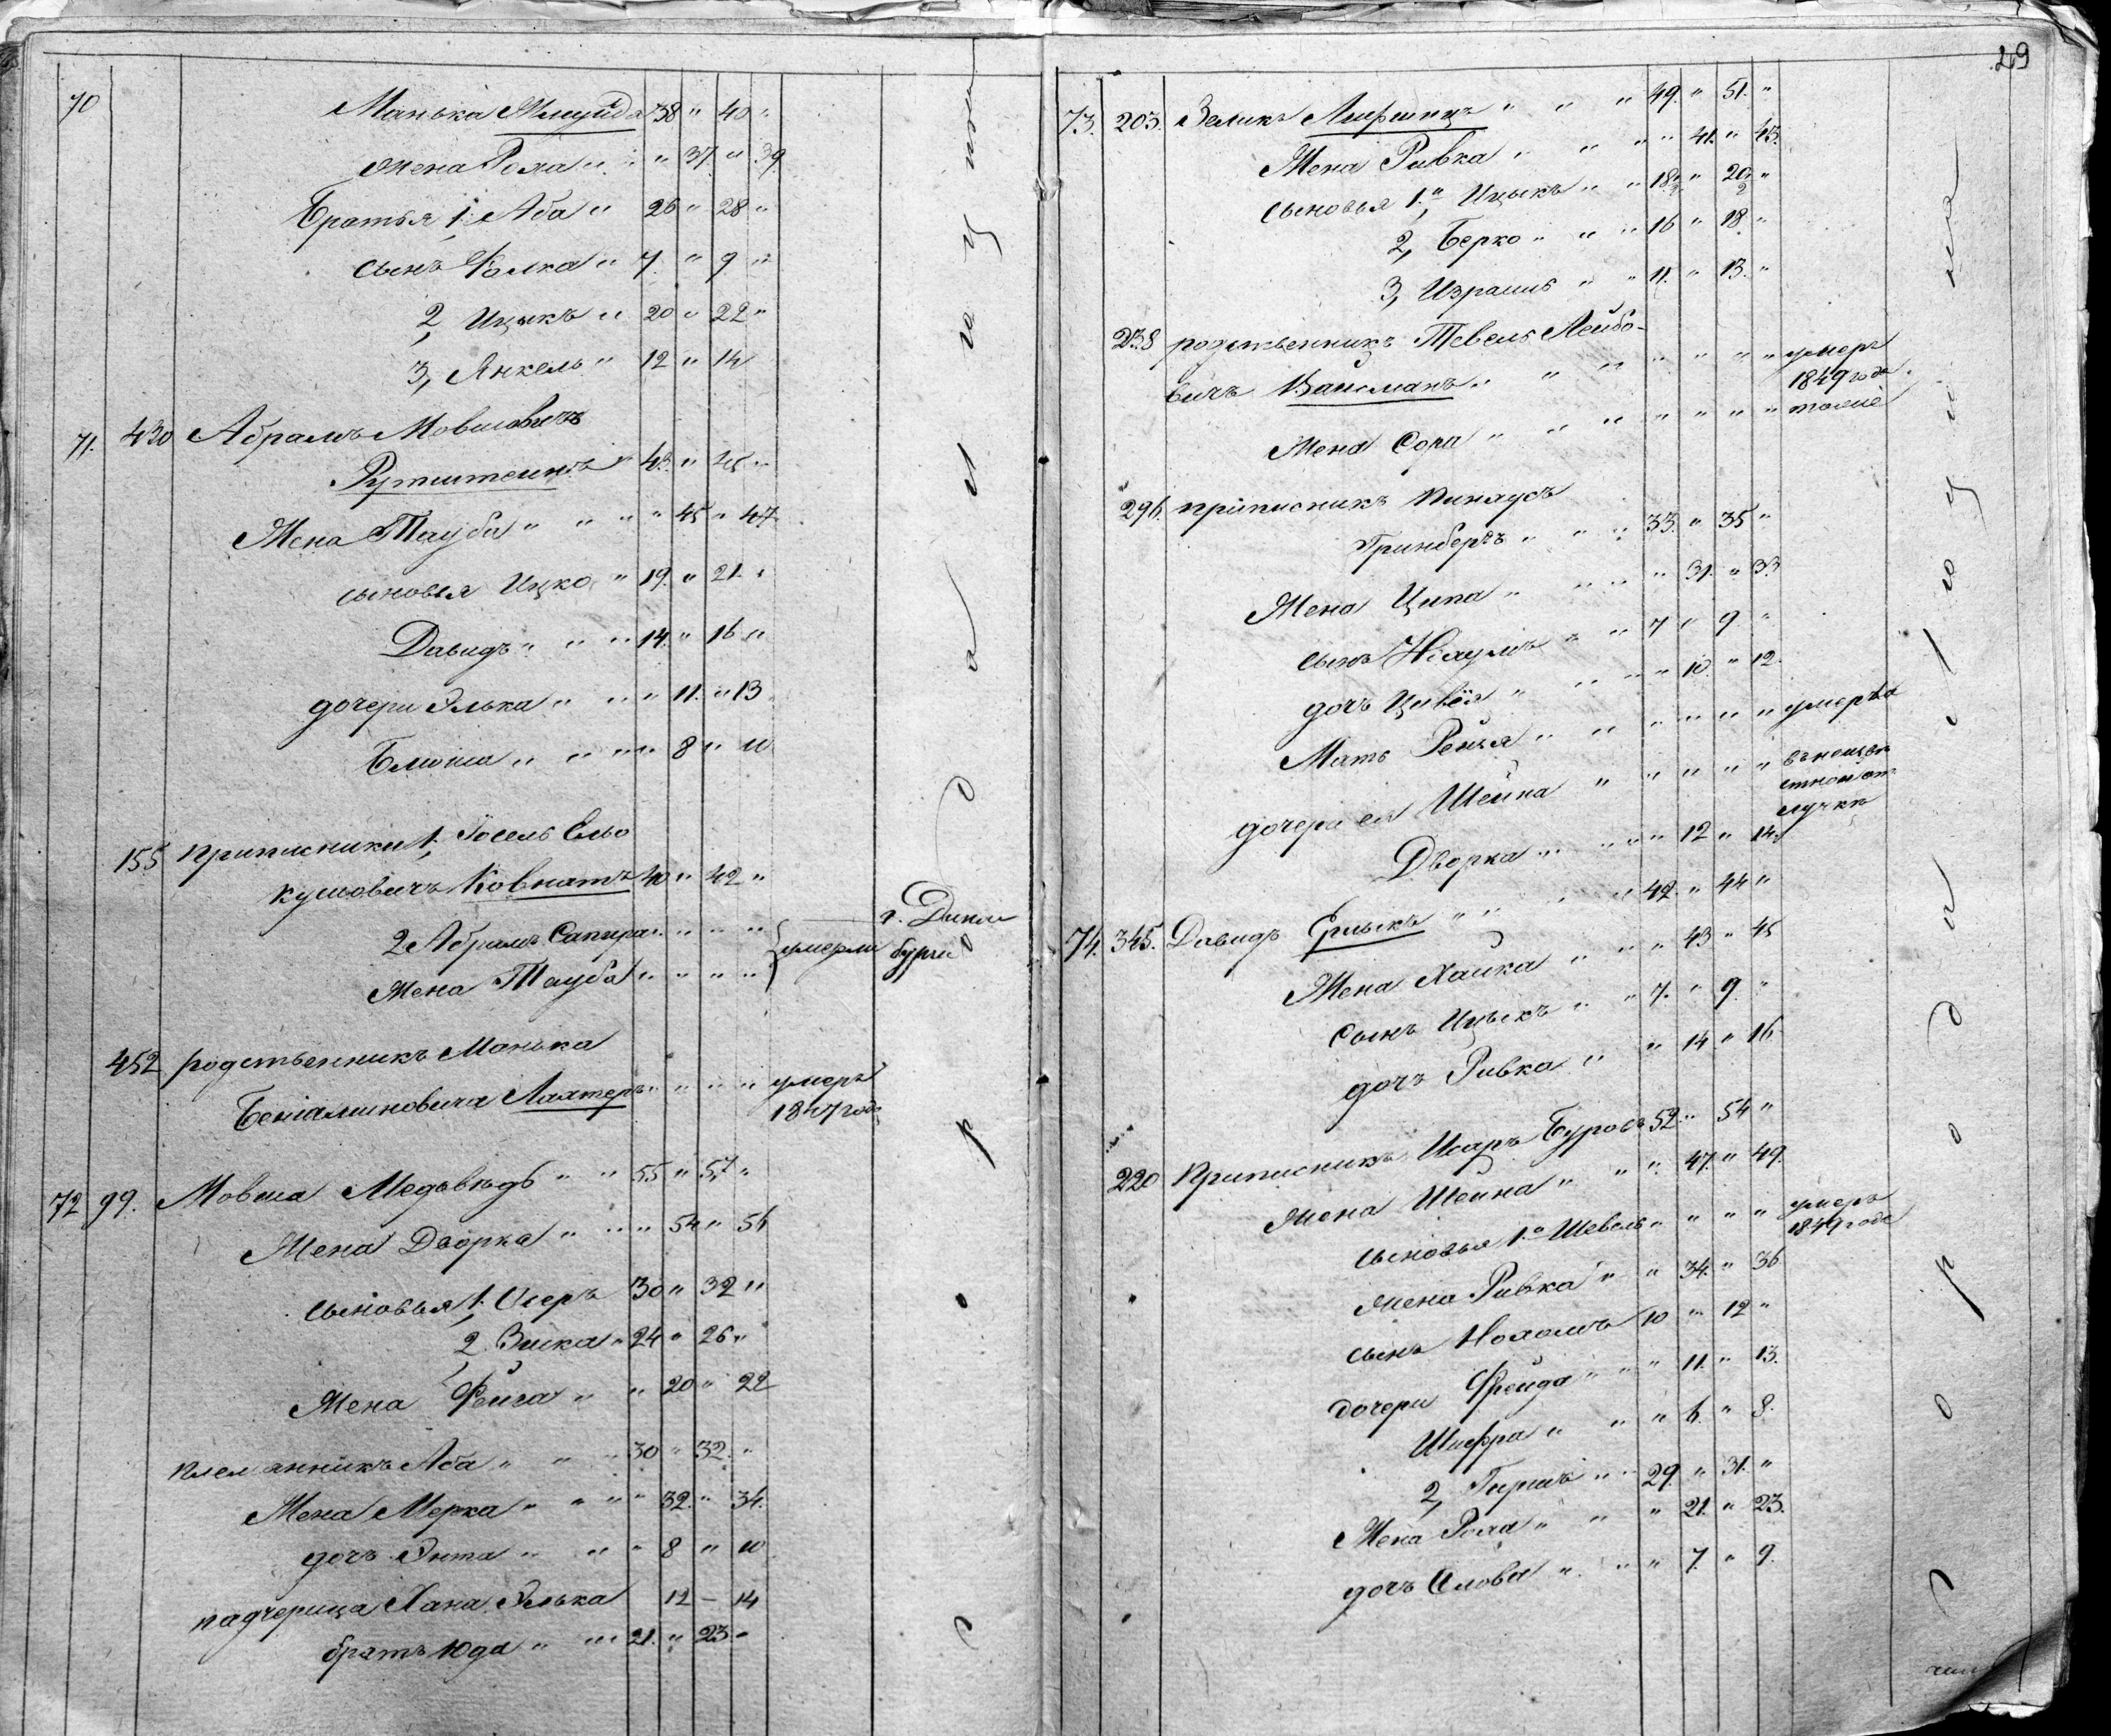 70
Манька 38 " 40 "
Жена Рохла " " " 37 " 39
Братья 1, Аба " 26 " 28 "
сынъ Фолка " 7 " 9 "
2, Ицыкъ " 20 " 22 "
3, Янкель " 12 " 14
71. 430 Абрамъ Мовшовичъ
Рутштейнъ " 43 " 45 "
Жена Тауба " " " " 45 " 47
сыновья Ицко " 19. " 21. "
Давидъ " " " 14 " 16 "
дочери Элька " " " " 11. " 13
Блюма " " " " 8 " 10
155 приписники 1, Іосель Ельо
кумовичъ Ковнатъ 40 " 42 "
2 Абрамъ Сапира " " " " умерли г. Дина
Жена Тауба " " " " бурги
452 родственникъ Манька
Беніаминовича Лахтеръ " " " " умеръ
1847 года
72 99. Мовша Медьвѣдь " " 55 " 57 "
Жена Дворка " " " 54 " 56
сыновья 1, Осеръ 30 " 32 "
2 Зиска " 24 " 26 "
Жена Фейга " " 20 " 22
племянникъ Аба " " " 30 " 32 "
Жена Мерка " " " " 32. " 34.
дочь Энта " " " 8 " 10
падчерица Хана Элька 12 — 14
братъ Юда " " 21. " 23 "
продолжаютъ
29
73. 203. Зеликъ Лифшицъ " " " 49. " 51. "
Жена Ривка " " " " 41. " 43.
сыновья 1.й Ицыкъ " " 18½ " 20½ "
2, Берко " " " 16 " 18. "
3, Израиль " " 11. " 13. "
238 родственникъ Тевель Лейбо-
вичъ Вайсманъ " " " " " " " умеръ
1849 года.
Жена Сора " " " " " " " тоже
296. приписникъ Пинхусъ
Гринбергъ " " " 33. " 35 "
Жена Ципа " " " " 31. " 33
сынъ Ніахумъ " " 7 " 9 "
дочь Цивья " " " " 10 " 12.
Мать Рейзя " " " " " " умерла
дочери ея Шейна " " " " " въ неизвѣ
стной от
лучкѣ
Дворка " " " " 12 " 14.
74. 345. Давидъ " " " 42. " 44 "
Жена Хайка " " " " 43 " 45
Сынъ Ицыкъ " " 7. " 9. "
дочь Ривка " " 14 " 16
220 Приписникъ Исаръ Буровъ 52 " 54 "
Жена Шейна " " " 47. " 49.
сыновья 1.й Шевель " " " " умеръ
1849 года
Жена Ривка " " 34. " 36
сынъ Нохомъ 10 " 12 "
дочери Фрейда " " " 11. " 13.
Шифра " " " 6. " 8.
2, Гиршъ " " 29. " 31. "
Жена Рохла " " " 21. " 23.
дочь Слова " " " 7. " 9.